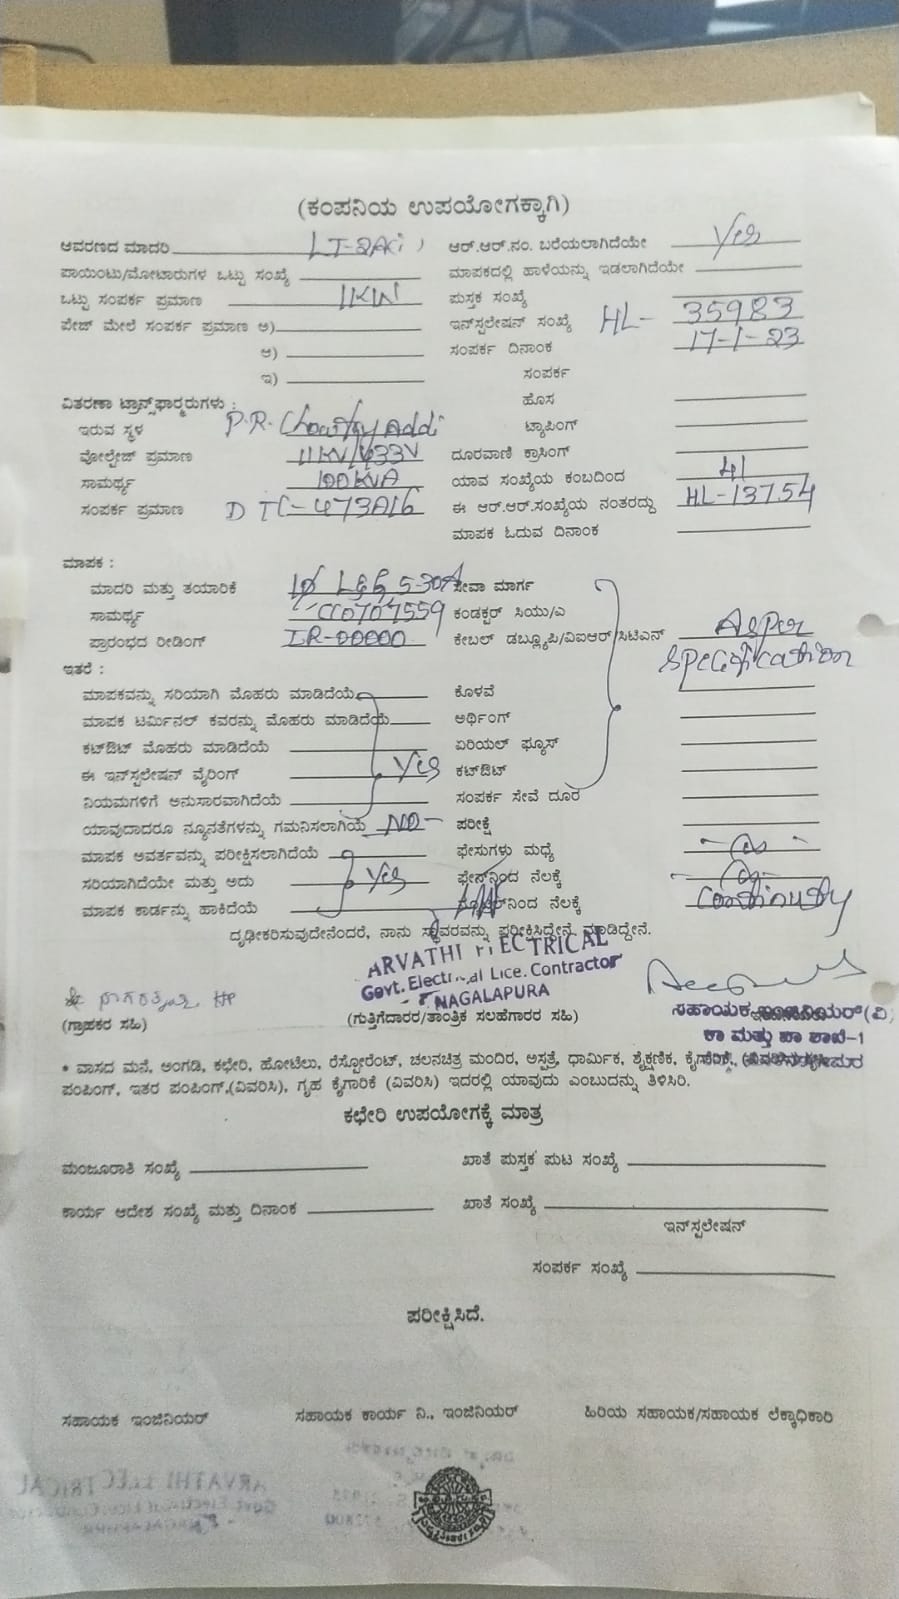 (ಕಂಪನಿಯ ಉಪಯೋಗಕ್ಕಾಗಿ)
ಆವರಣದ ಮಾದರಿ LT-2A(i) ಆರ್.ಆರ್.ನಂ. ಬರೆಯಲಾಗಿದೆಯೇ Yes
ಪಾಯಿಂಟು/ಮೋಟಾರುಗಳ ಒಟ್ಟು ಸಂಖ್ಯೆ ಮಾಪಕದಲ್ಲಿ ಹಾಳೆಯನ್ನು ಇಡಲಾಗಿದೆಯೇ
ಒಟ್ಟು ಸಂಪರ್ಕ ಪ್ರಮಾಣ 1KW ಪುಸ್ತಕ ಸಂಖ್ಯೆ
ಪೇಜ್ ಮೇಲೆ ಸಂಪರ್ಕ ಪ್ರಮಾಣ ಅ) ಇನ್‌ಸ್ಟಲೇಷನ್ ಸಂಖ್ಯೆ HL- 35983
ಆ) ಸಂಪರ್ಕ ದಿನಾಂಕ 17-1-23
ಇ) ಸಂಪರ್ಕ
ವಿತರಣಾ ಟ್ರಾನ್ಸ್‌ಫಾರ್ಮರುಗಳು : ಹೊಸ
ಇರುವ ಸ್ಥಳ P.R. ಟ್ಯಾಪಿಂಗ್
ವೋಲ್ಟೇಜ್ ಪ್ರಮಾಣ 11KV/433V ದೂರವಾಣಿ ಕ್ರಾಸಿಂಗ್
ಸಾಮರ್ಥ್ಯ 100KVA ಯಾವ ಸಂಖ್ಯೆಯ ಕಂಬದಿಂದ 41
ಸಂಪರ್ಕ ಪ್ರಮಾಣ DTC-473A16 ಈ ಆರ್.ಆರ್.ಸಂಖ್ಯೆಯ ನಂತರದ್ದು HL-13754
ಮಾಪಕ ಓದುವ ದಿನಾಂಕ
ಮಾಪಕ :
ಮಾದರಿ ಮತ್ತು ತಯಾರಿಕೆ 1Ø L&G 5-30A ಸೇವಾ ಮಾರ್ಗ
ಸಾಮರ್ಥ್ಯ ಕಂಡಕ್ಟರ್ ಸಿಯು/ಎ
ಪ್ರಾರಂಭದ ರೀಡಿಂಗ್ IR-00000 ಕೇಬಲ್ ಡಬ್ಲ್ಯೂಪಿ/ವಿಐಆರ್/ಸಿಟಿಎಸ್ As per
ಇತರೆ : specification
ಮಾಪಕವನ್ನು ಸರಿಯಾಗಿ ಮೊಹರು ಮಾಡಿದೆಯೆ ಕೊಳವೆ
ಮಾಪಕ ಟರ್ಮಿನಲ್ ಕವರನ್ನು ಮೊಹರು ಮಾಡಿದೆಯೆ ಅರ್ಥಿಂಗ್
ಕಟ್‌ಔಟ್ ಮೊಹರು ಮಾಡಿದೆಯೆ ಏರಿಯಲ್ ಫ್ಯೂಸ್
ಈ ಇನ್‌ಸ್ಟಲೇಷನ್ ವೈರಿಂಗ್ Yes ಕಟ್‌ಔಟ್
ನಿಯಮಗಳಿಗೆ ಅನುಸಾರವಾಗಿದೆಯೆ ಸಂಪರ್ಕ ಸೇವೆ ದೂರ
ಯಾವುದಾದರೂ ನ್ಯೂನತೆಗಳನ್ನು ಗಮನಿಸಲಾಗಿಯೆ NO- ಪರೀಕ್ಷೆ
ಮಾಪಕ ಅವರ್ತವನ್ನು ಪರೀಕ್ಷಿಸಲಾಗಿದೆಯೆ ಫೇಸುಗಳು ಮಧ್ಯೆ
ಸರಿಯಾಗಿದೆಯೇ ಮತ್ತು ಅದು Yes ಫೇಸ್‌ನಿಂದ ನೆಲಕ್ಕೆ
ಮಾಪಕ ಕಾರ್ಡನ್ನು ಹಾಕಿದೆಯೆ ನಿಂದ ನೆಲಕ್ಕೆ Continuity
ದೃಢೀಕರಿಸುವುದೇನೆಂದರೆ, ನಾನು ಸ್ಥಾವರವನ್ನು ಪರೀಕ್ಷಿಸಿದ್ದೇನೆ ಮಾಡಿದ್ದೇನೆ.
ARVATHI ELECTRICAL
Govt. Electrical Lice. Contractor
NAGALAPURA
(ಗ್ರಾಹಕರ ಸಹಿ) (ಗುತ್ತಿಗೆದಾರರ/ತಾಂತ್ರಿಕ ಸಲಹೆಗಾರರ ಸಹಿ)
ಸಹಾಯಕ ಇಂಜಿನಿಯರ್(ವಿ)
ಕಾ ಮತ್ತು ಪಾ ಶಾಖೆ-1
• ವಾಸದ ಮನೆ, ಅಂಗಡಿ, ಕಛೇರಿ, ಹೋಟೆಲು, ರೆಸ್ಟೋರೆಂಟ್, ಚಲನಚಿತ್ರ ಮಂದಿರ, ಅಸ್ಪತ್ರೆ, ಧಾರ್ಮಿಕ, ಶೈಕ್ಷಣಿಕ,
ಪಂಪಿಂಗ್, ಇತರ ಪಂಪಿಂಗ್,(ವಿವರಿಸಿ), ಗೃಹ ಕೈಗಾರಿಕೆ (ವಿವರಿಸಿ) ಇದರಲ್ಲಿ ಯಾವುದು ಎಂಬುದನ್ನು ತಿಳಿಸಿರಿ.
ಕಛೇರಿ ಉಪಯೋಗಕ್ಕೆ ಮಾತ್ರ
ಮಂಜೂರಾತಿ ಸಂಖ್ಯೆ ಖಾತೆ ಪುಸ್ತಕ ಪುಟ ಸಂಖ್ಯೆ
ಕಾರ್ಯ ಆದೇಶ ಸಂಖ್ಯೆ ಮತ್ತು ದಿನಾಂಕ ಖಾತೆ ಸಂಖ್ಯೆ
ಇನ್‌ಸ್ಟಲೇಷನ್
ಸಂಪರ್ಕ ಸಂಖ್ಯೆ
ಪರೀಕ್ಷಿಸಿದೆ.
ಸಹಾಯಕ ಇಂಜಿನಿಯರ್ ಸಹಾಯಕ ಕಾರ್ಯ ನಿ., ಇಂಜಿನಿಯರ್ ಹಿರಿಯ ಸಹಾಯಕ/ಸಹಾಯಕ ಲೆಕ್ಕಾಧಿಕಾರಿ